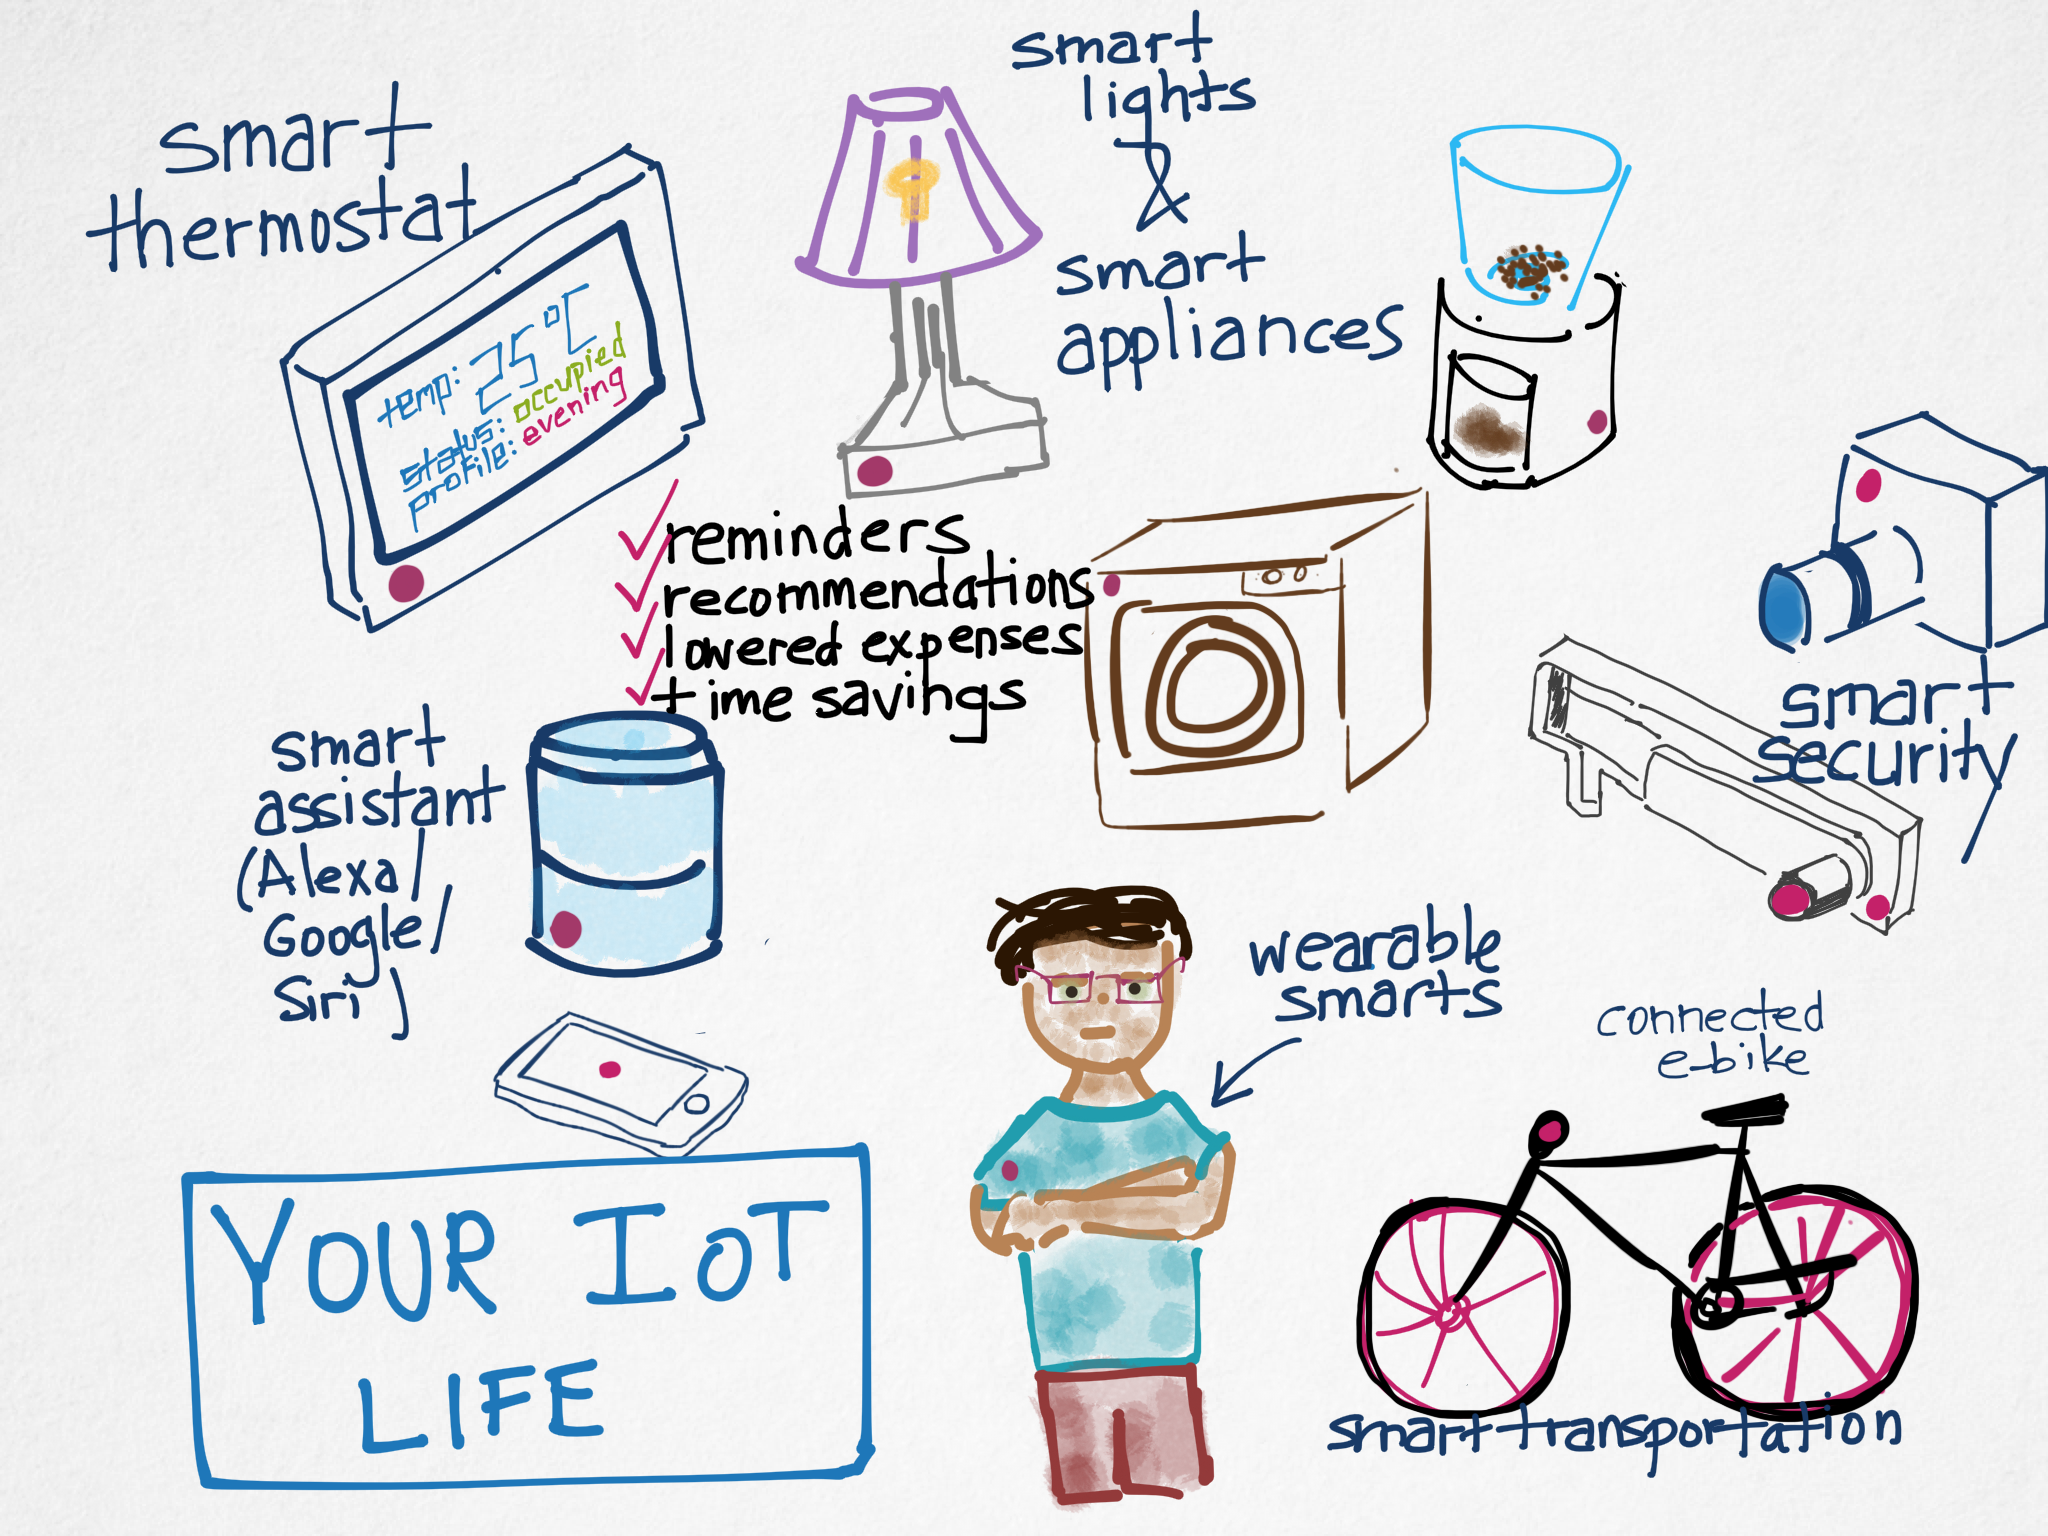 smart
thermostat
temp: 25°C
status: occupied
profile: evening
smart
lights
&
smart
appliances
reminders
recommendations
lowered expenses
time savings
smart
security
smart
assistant
(Alexa/
Google/
Siri)
wearable
smarts
connected
e-bike
smart transportation
YOUR IOT
LIFE